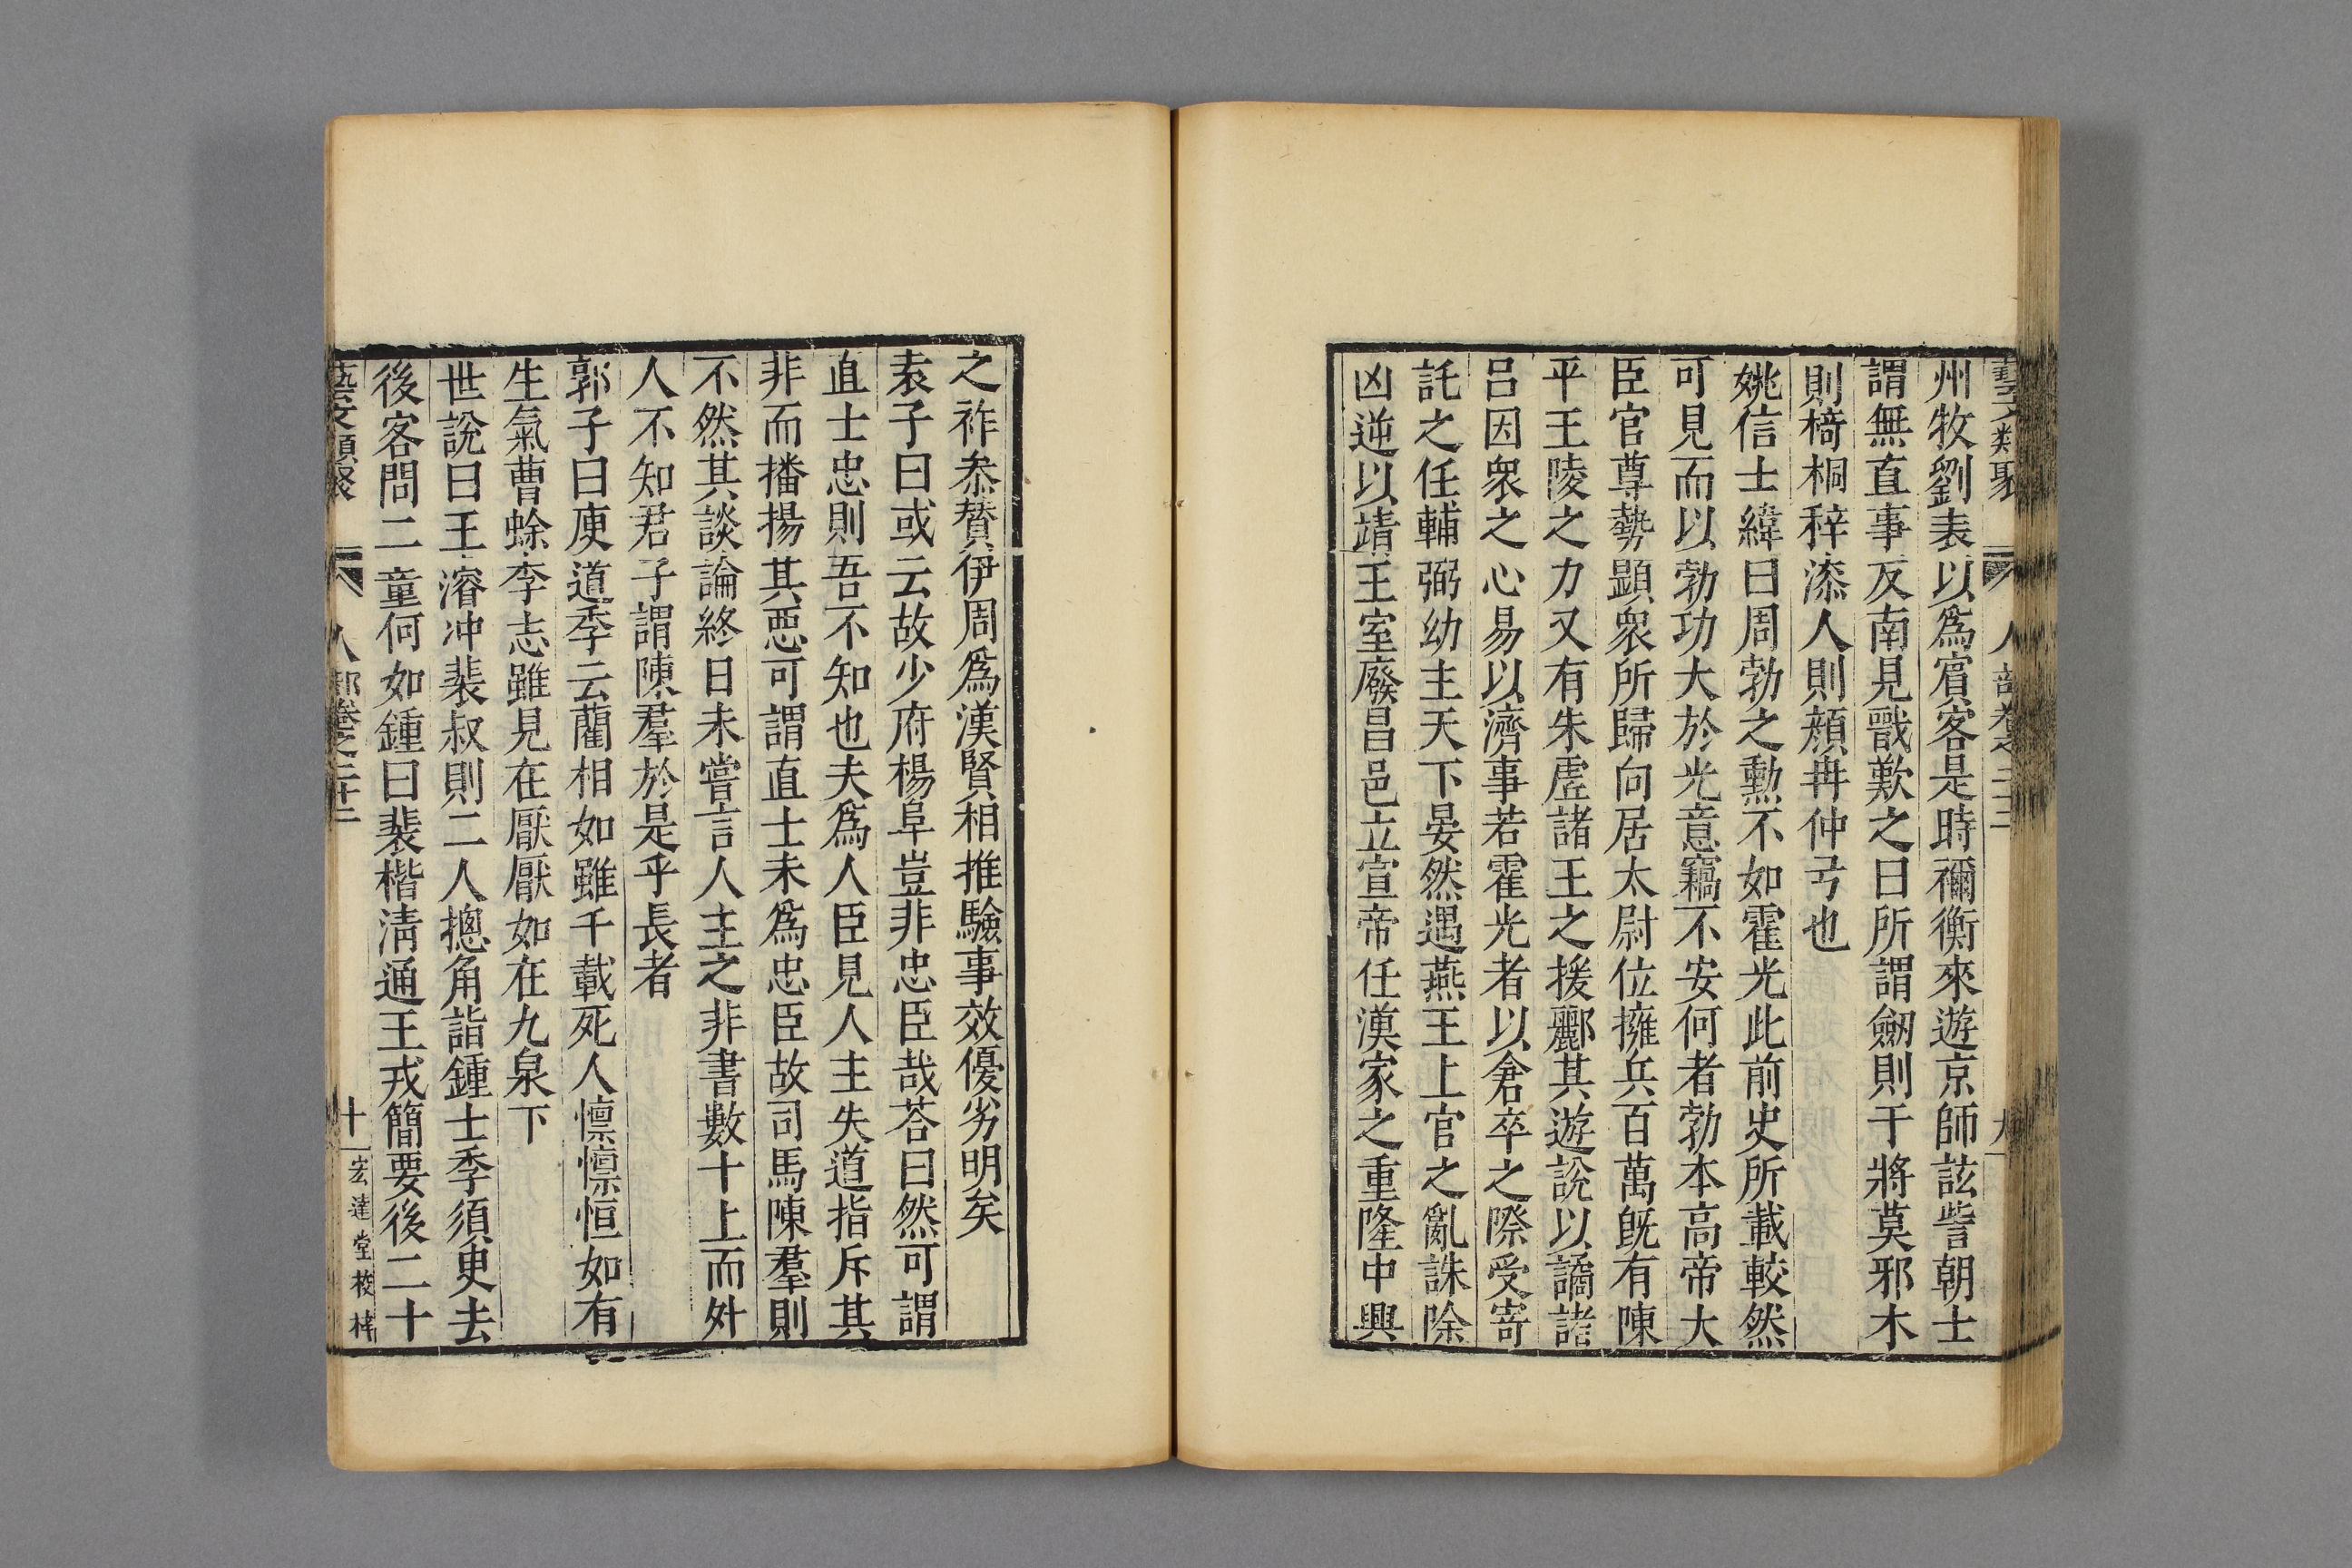 藝文類聚 人部卷之二十二 九
州牧劉表以爲賓客是時禰衡來遊京師詃訾朝士
謂無直事反南見戬歎之曰所謂劒則干將莫邪木
則椅桐梓漆人則顏冉仲弓也
姚信士緯曰周勃之勳不如霍光此前史所載較然
可見而以勃功大於光意竊不安何者勃本高帝大
臣官尊勢顯衆所歸向居太尉位擁兵百萬旣有陳
平王陵之力又有朱虛諸王之援酈其遊說以譎諸
呂因衆之心易以濟事若霍光者以倉卒之際受寄
託之任輔弼幼主天下晏然遇燕王上官之亂誅除
凶逆以靖王室廢昌邑立宣帝任漢家之重隆中興
之祚叅贊伊周爲漢賢相推驗事效優劣明矣
袁子曰或云故少府楊阜豈非忠臣哉荅曰然可謂
直士忠則吾不知也夫爲人臣見人主失道指斥其
非而播揚其惡可謂直士未爲忠臣故司馬陳羣則
不然其談論終日未嘗言人主之非書數十上而外
人不知君子謂陳羣於是乎長者
郭子曰庾道季云藺相如雖千載死人懍懍恒如有
生氣曹蜍李志雖見在厭厭如在九泉下
世說曰王濬沖裴叔則二人摠角詣鍾士季須臾去
後客問二童何如鍾曰裴楷淸通王戎簡要後二十
藝文類聚 人部卷之二十二 十 宏達堂校栞